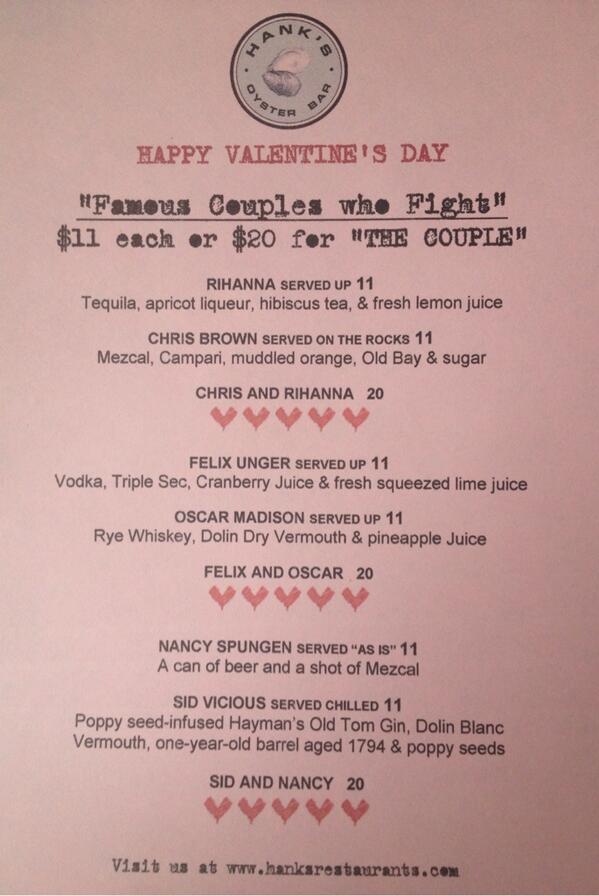 HANK'S
OYSTER BAR
HAPPY VALENTINE'S DAY
"Famous Couples who Fight"
$11 each or $20 for "THE COUPLE"
RIHANNA SERVED UP 11
Tequila, apricot liqueur, hibiscus tea, & fresh lemon juice
CHRIS BROWN SERVED ON THE ROCKS 11
Mezcal, Campari, muddled orange, Old Bay & sugar
CHRIS AND RIHANNA 20
FELIX UNGER SERVED UP 11
Vodka, Triple Sec, Cranberry Juice & fresh squeezed lime juice
OSCAR MADISON SERVED UP 11
Rye Whiskey, Dolin Dry Vermouth & pineapple Juice
FELIX AND OSCAR 20
NANCY SPUNGEN SERVED "AS IS" 11
A can of beer and a shot of Mezcal
SID VICIOUS SERVED CHILLED 11
Poppy seed-infused Hayman's Old Tom Gin, Dolin Blanc
Vermouth, one-year-old barrel aged 1794 & poppy seeds
SID AND NANCY 20
Visit us at www.hanksrestaurants.com